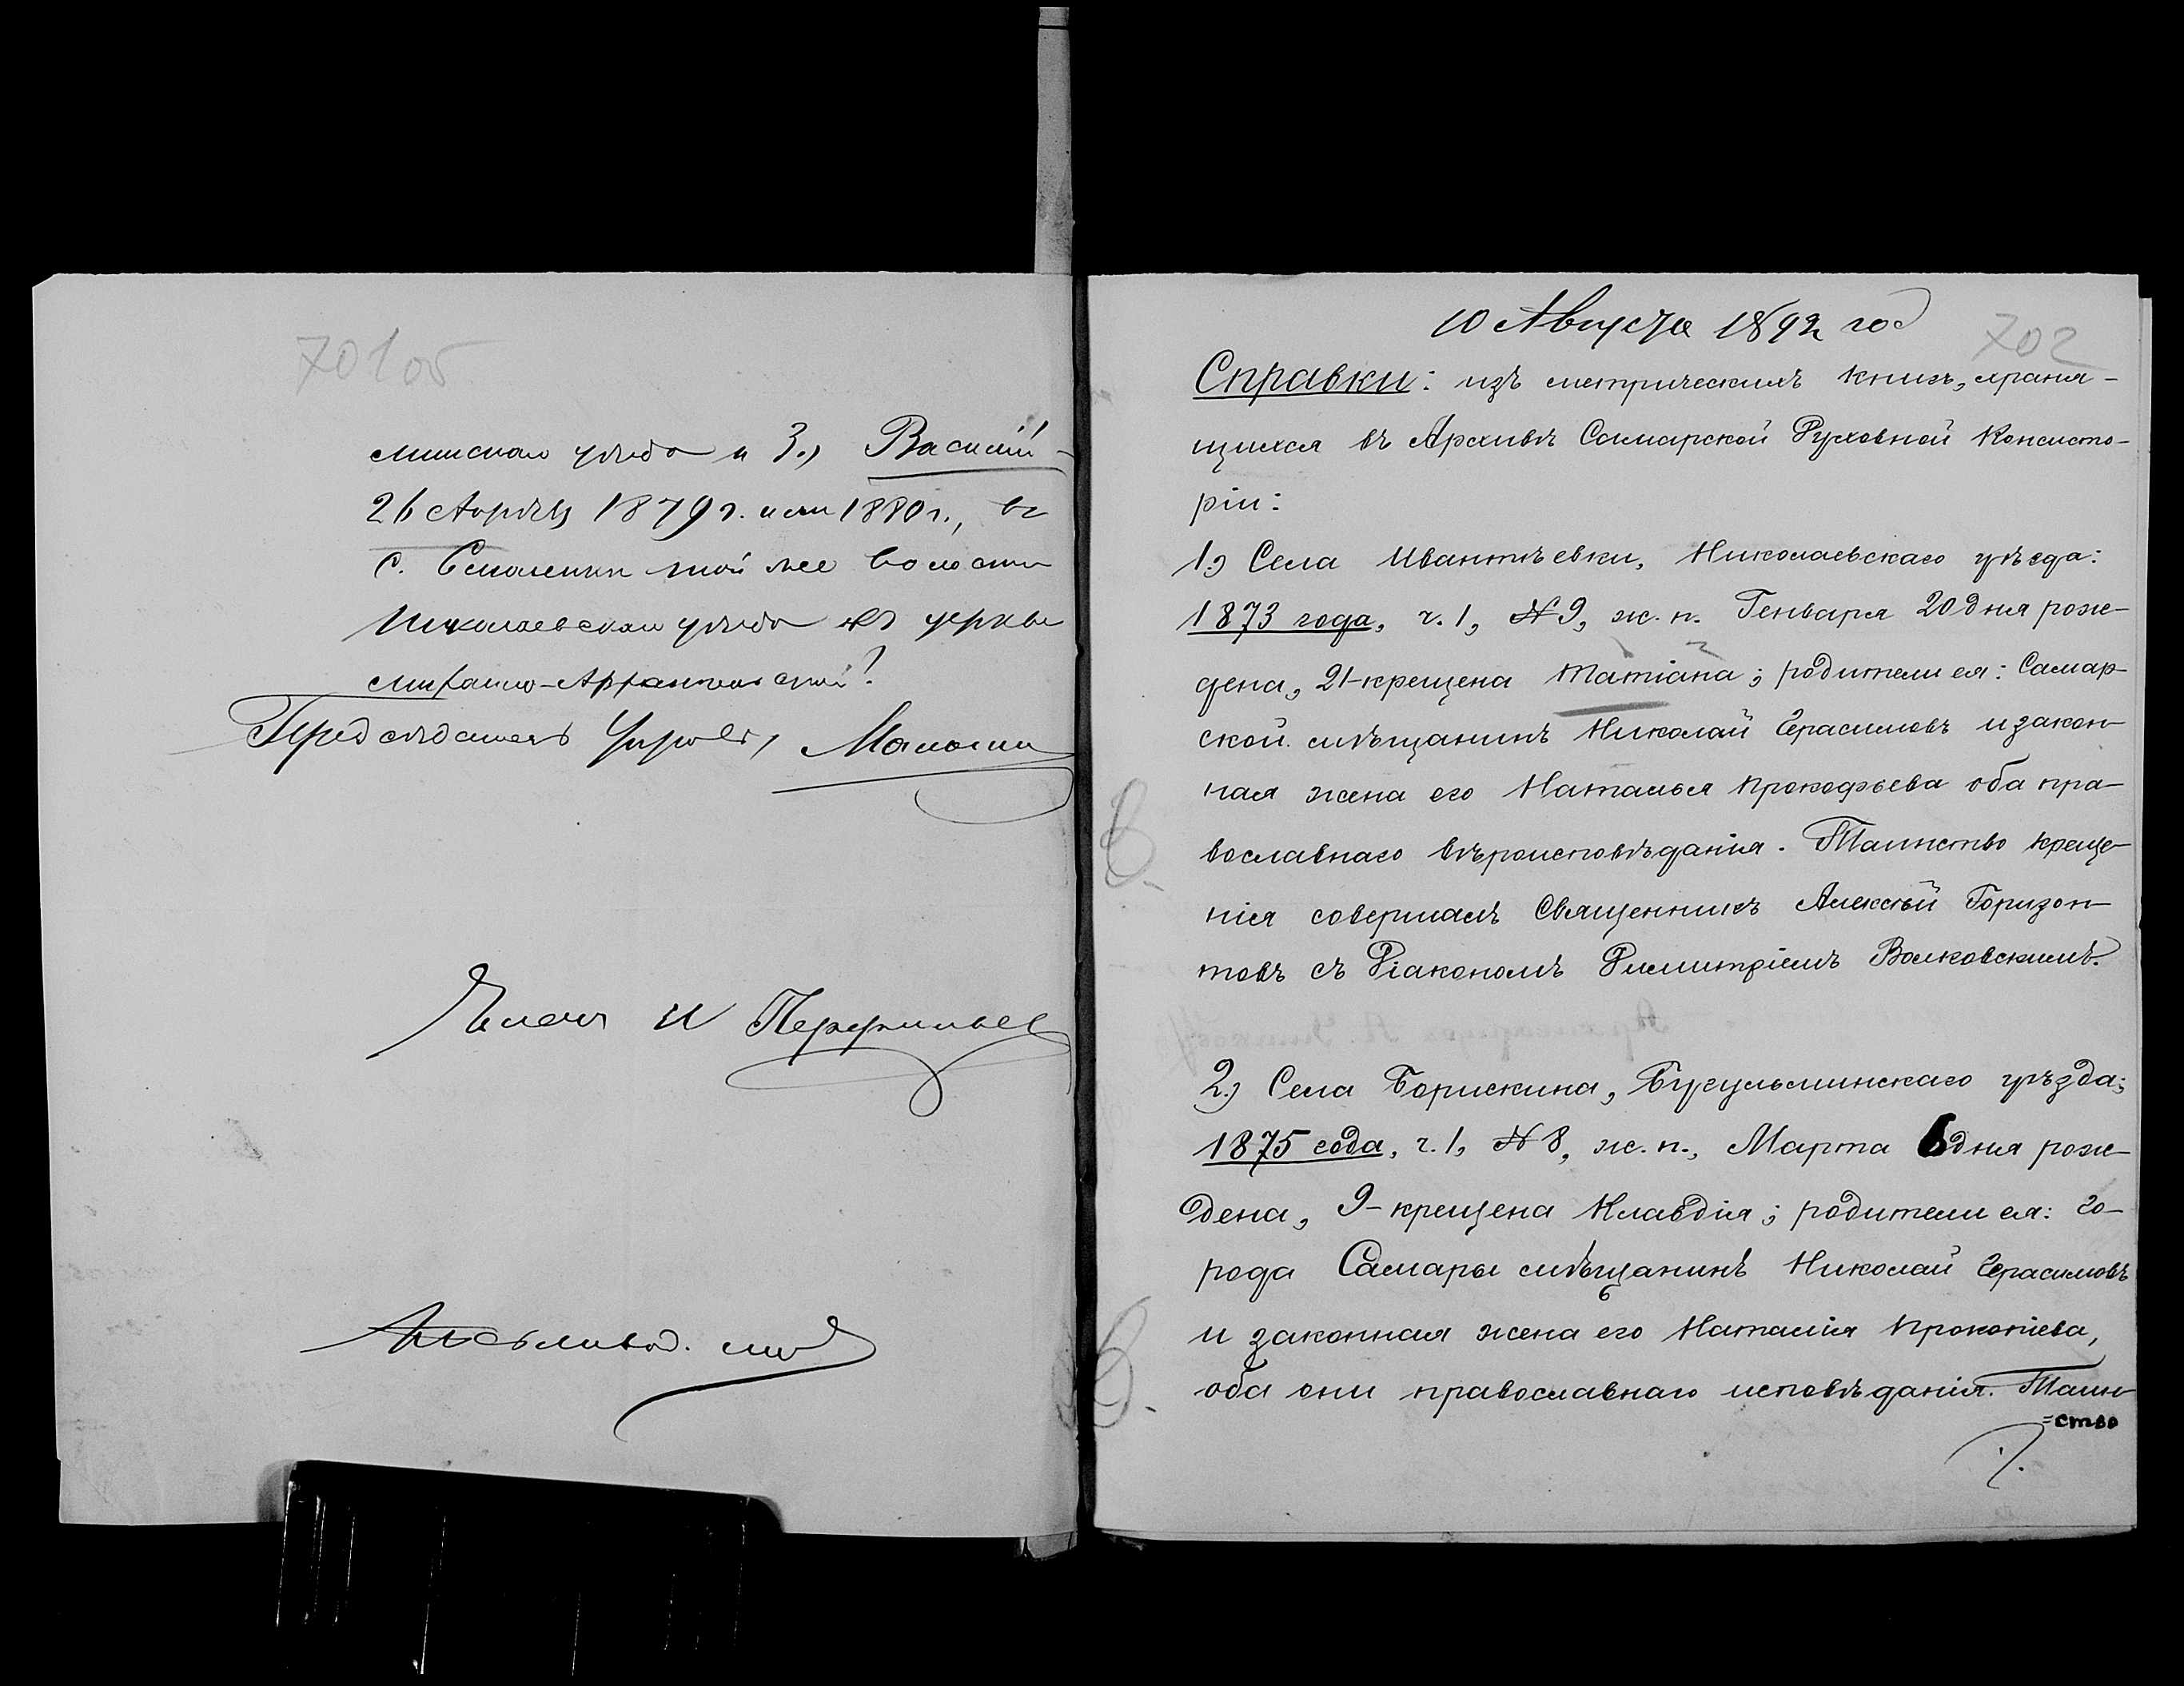 701 об
минскаго уѣзда и 3., Василій
26 Апрѣля 1879 г. или 1880 г., въ
с. Смоленки той же волости
Николаевскаго уѣзда въ церкви
Михаило-Архангельской?
Предсѣдатель Управы,
Членъ И Перфильев
10 Августа 1892 год
702
Справки: изъ метрическихъ книгъ, храня-
щихся въ Архивѣ Самарской Духовной Консисто-
ріи:
1.) Села Ивантѣевки, Николаевскаго уѣзда:
1873 года, ч. 1, № 9, ж. п. Генваря 20 дня рож-
дена, 21-крещена Татіана; родители ея: Самар-
ской мѣщанинъ Николай Герасимовъ и закон-
ная жена его Наталья Прокофьева оба пра-
вославнаго вѣроисповѣданія. Таинство креще-
нія совершалъ Священникъ Алексѣй Горизон-
товъ съ Діакономъ Димитріемъ Волковскимъ.
2.) Села Борискина, Бугульминскаго уѣзда;
1875 года, ч. 1, № 8, ж. п., Марта 6 дня рож-
дена, 9-крещена Клавдія; родители ея: го-
рода Самары мѣщанинъ Николай Герасимовъ
и законная жена его Наталія Прокопіева,
оба они православнаго исповѣданія. Таин-
=ство